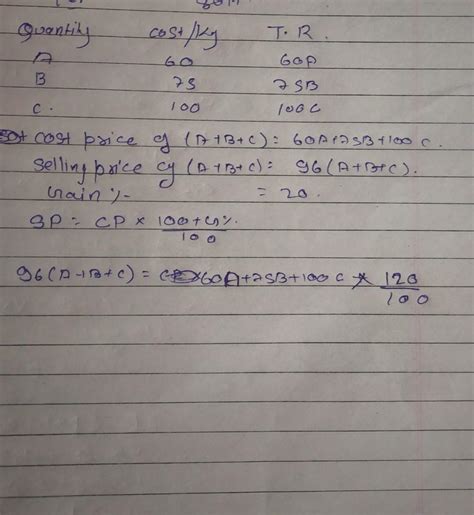 Quantity cost/Kg T.R.
A 60 60A
B 75 75B
C. 100 100C
cost price of (A+B+C) = 60A+75B+100C.
Selling price of (A+B+C) = 96(A+B+C).
Gain % = 20.
SP = CP x 100+G%
100
96(A+B+C) = 60A+75B+100C x 120
100